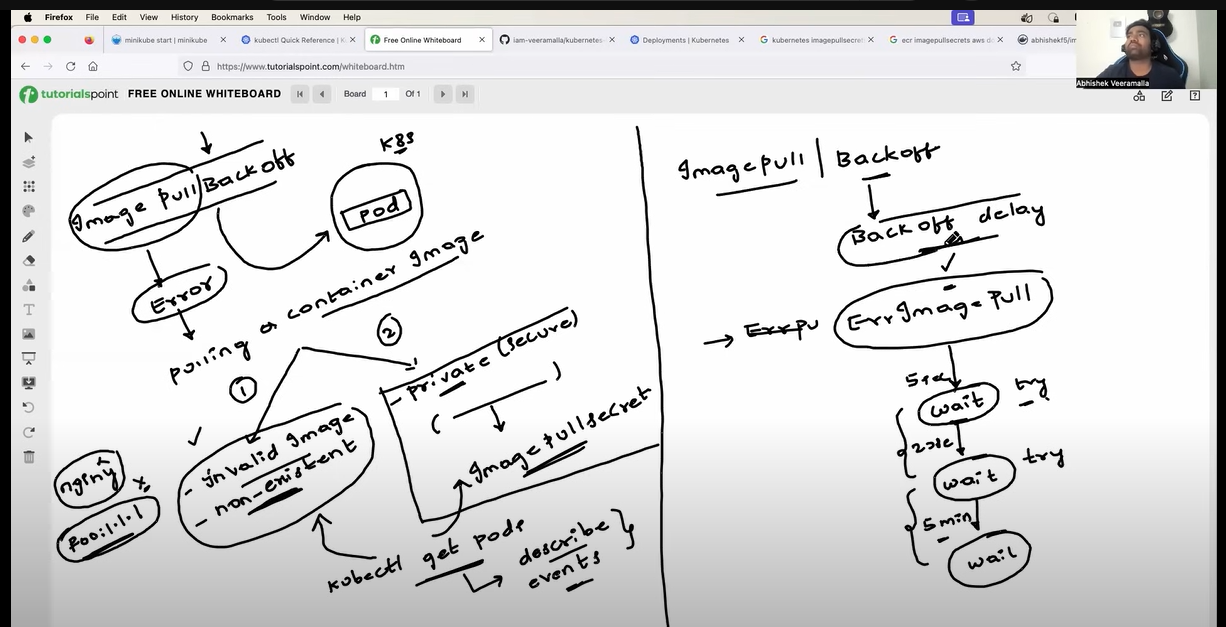 Firefox File Edit View History Bookmarks Tools Window Help
minikube start | minikube
kubectl Quick Reference | K
Free Online Whiteboard
iam-veeramalla/kubernetes-
Deployments | Kubernetes
kubernetes imagepullsecret
ecr imagepullsecrets aws do
abhishekf5/im
https://www.tutorialspoint.com/whiteboard.htm
Abhishek Veeramalla
tutorialspoint FREE ONLINE WHITEBOARD Board 1 Of 1
Image Pull Backoff
K8S
pod
Error
pulling a container Image
1
2
- Invalid Image
- non-existent
- private (secure)
( )
ImagePullsecret
nginy
foo:1.1.1
kubectl get pods
describe
events
Imagepull | Backoff
Backoff delay
→ ErrPu
ErrImagePull
wait try
wait try
5 min
wait